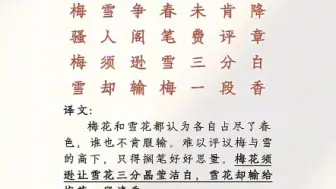 梅雪争春未肯降
骚人阁笔费评章
梅须逊雪三分白
雪却输梅一段香
译文：
梅花和雪花都认为各自占尽了春
色，谁也不肯服输。难以评议梅与雪
的高下，只得搁笔好好思量。梅花须
逊让雪花三分晶莹洁白，雪花却输给